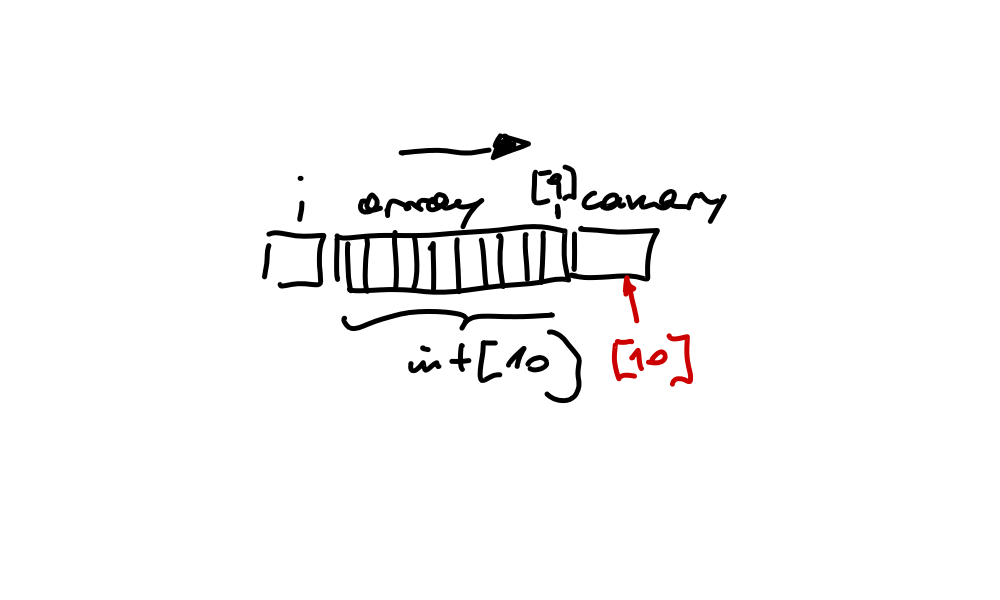 i array [9] canary
int[10] [10]